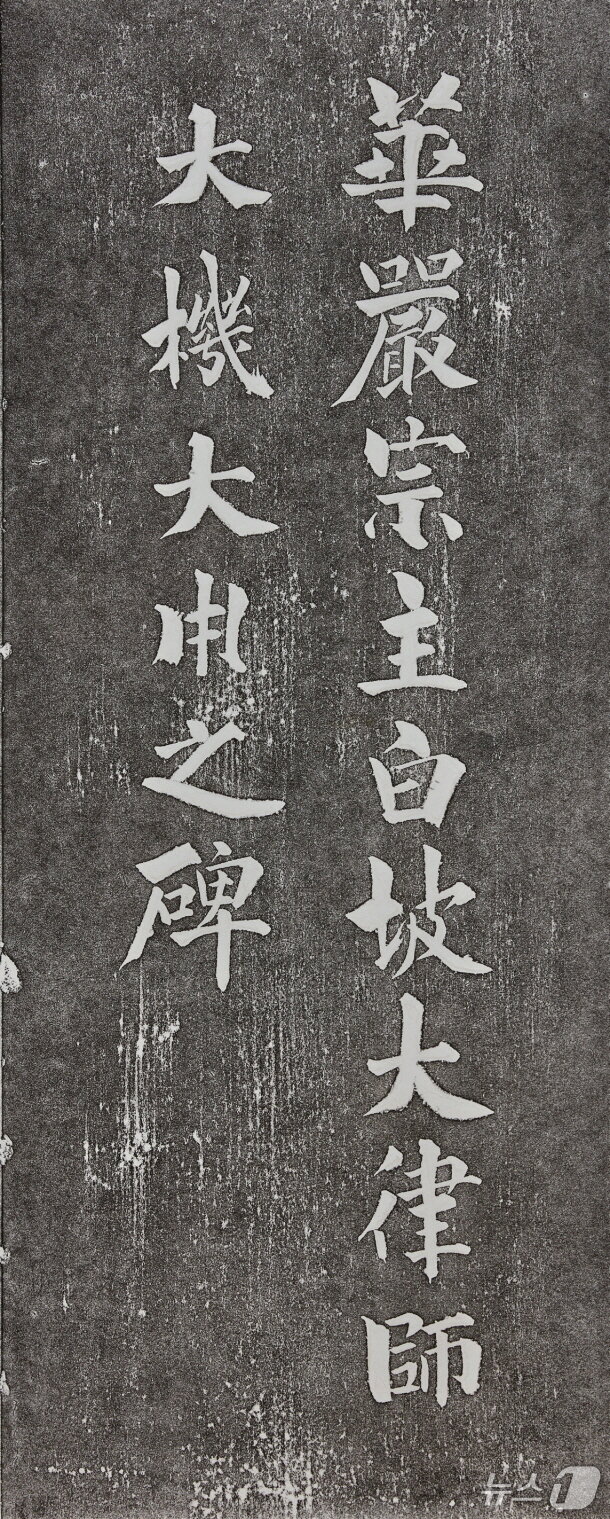 華嚴宗主白坡大律師
大機大用之碑
뉴스1